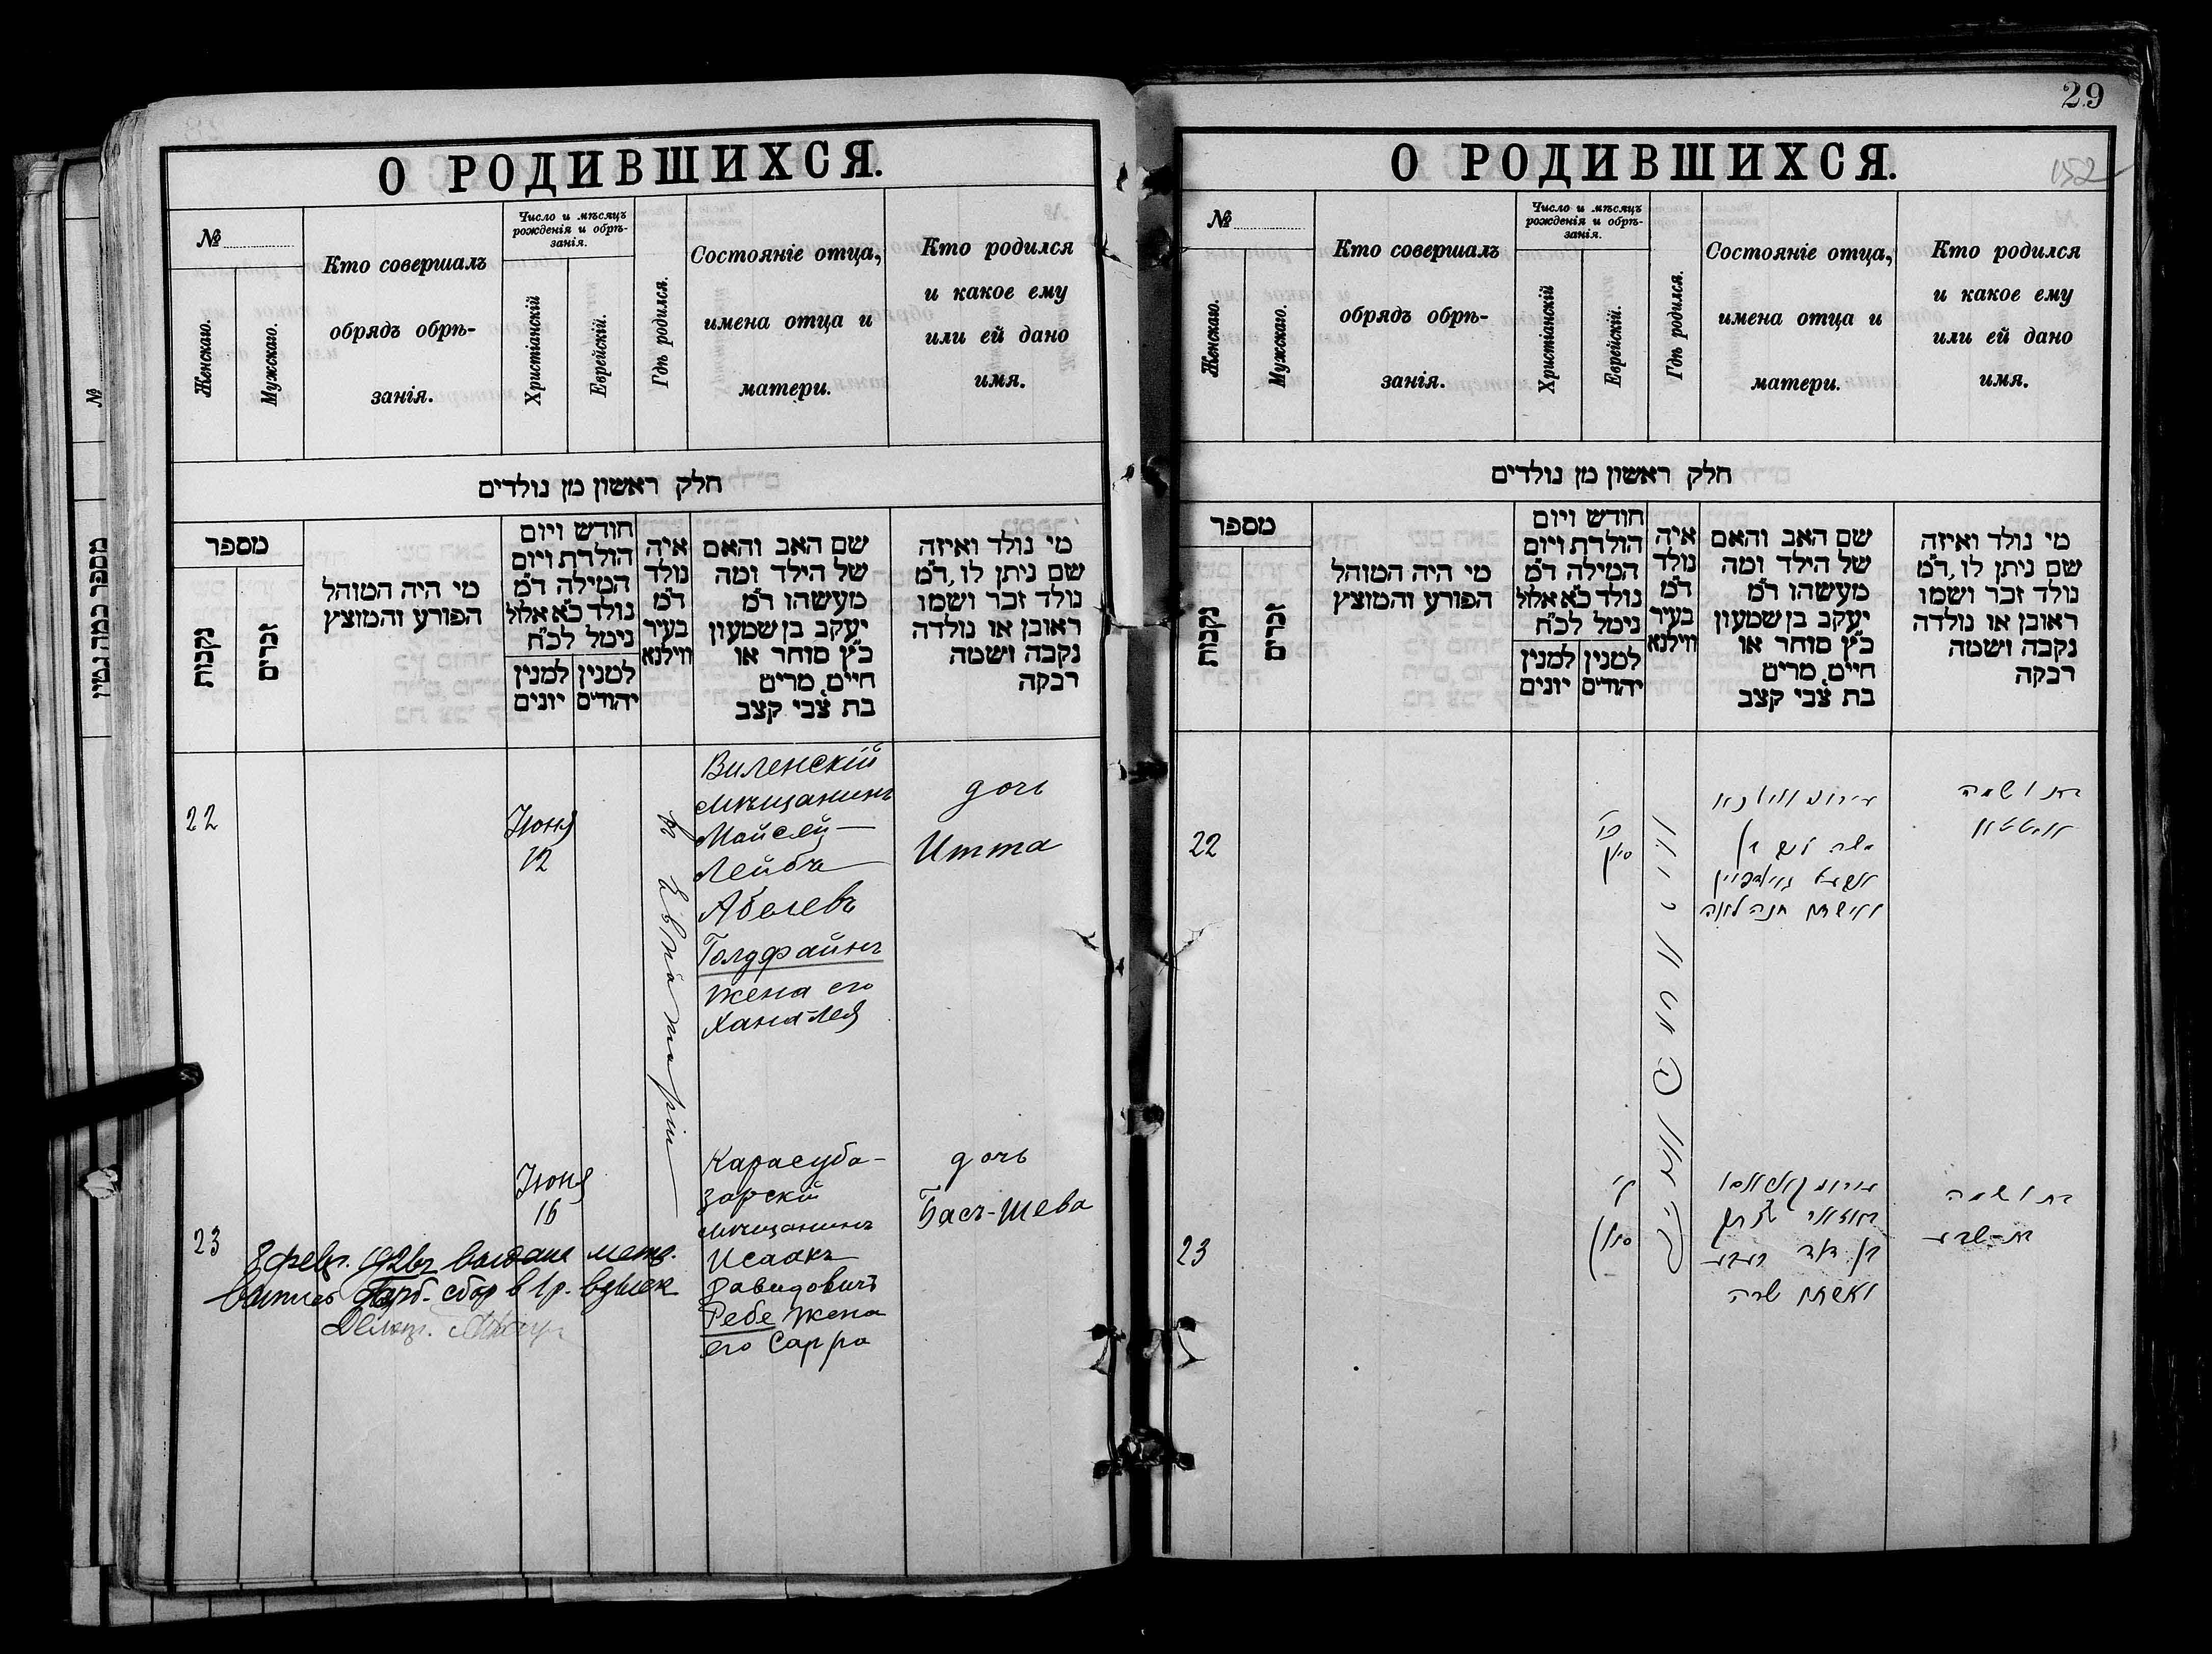 О РОДИВШИХСЯ.
№
Женскаго.
Мужскаго.
Кто совершалъ
обрядъ обрѣ-
занія.
Число и мѣсяцъ
рожденія и обрѣ-
занія.
Христіанскій
Еврейскій.
Гдѣ родился.
Состояніе отца,
имена отца и
матери.
Кто родился
и какое ему
или ей дано
имя.
חלק ראשון מן נולדים
מספר
נקבות
זכרים
מי היה המוהל
הפורע והמוצץ
חודש ויום
הולדת ויום
המילה ד״מ
נולד כ״א אלול
נימל לכ״ח
למנין יהודים
למנין יונים
איה
נולד
ד״מ
בעיר
ווילנא
שם האב והאם
של הילד ומה
מעשהו ד״מ
יעקב בן שמעון
כ״ץ סוחר או
חייט, מרים
בת צבי קצב
מי נולד ואיזה
שם ניתן לו, ד״מ
נולד זכר ושמו
ראובן או נולדה
נקבה ושמה
רבקה
22
Іюня
12
въ Евпаторіи
Виленскій
мѣщанинъ
Мойсей-
Лейбъ
Абелевъ
Голдфайнъ
жена его
Хана-Лея
дочь
Итта
23
Іюня
16
Карасуба-
зарскій
мѣщанинъ
Исаакъ
Давидовичъ
Ребе жена
его Сарра
дочь
Басъ-Шева
8 февр. выдана метр.
сбор в 1 р. взыск
29
152
О РОДИВШИХСЯ.
№
Женскаго.
Мужскаго.
Кто совершалъ
обрядъ обрѣ-
занія.
Число и мѣсяцъ
рожденія и обрѣ-
занія.
Христіанскій
Еврейскій.
Гдѣ родился.
Состояніе отца,
имена отца и
матери.
Кто родился
и какое ему
или ей дано
имя.
חלק ראשון מן נולדים
מספר
נקבות
זכרים
מי היה המוהל
הפורע והמוצץ
חודש ויום
הולדת ויום
המילה ד״מ
נולד כ״א אלול
נימל לכ״ח
למנין יהודים
למנין יונים
איה
נולד
ד״מ
בעיר
ווילנא
שם האב והאם
של הילד ומה
מעשהו ד״מ
יעקב בן שמעון
כ״ץ סוחר או
חייט, מרים
בת צבי קצב
מי נולד ואיזה
שם ניתן לו, ד״מ
נולד זכר ושמו
ראובן או נולדה
נקבה ושמה
רבקה
22
סיון
ואשתו חנה לאה
בת ושמה
23
סיון
בן דוד
ואשתו שרה
בת ושמה
בת-שבע